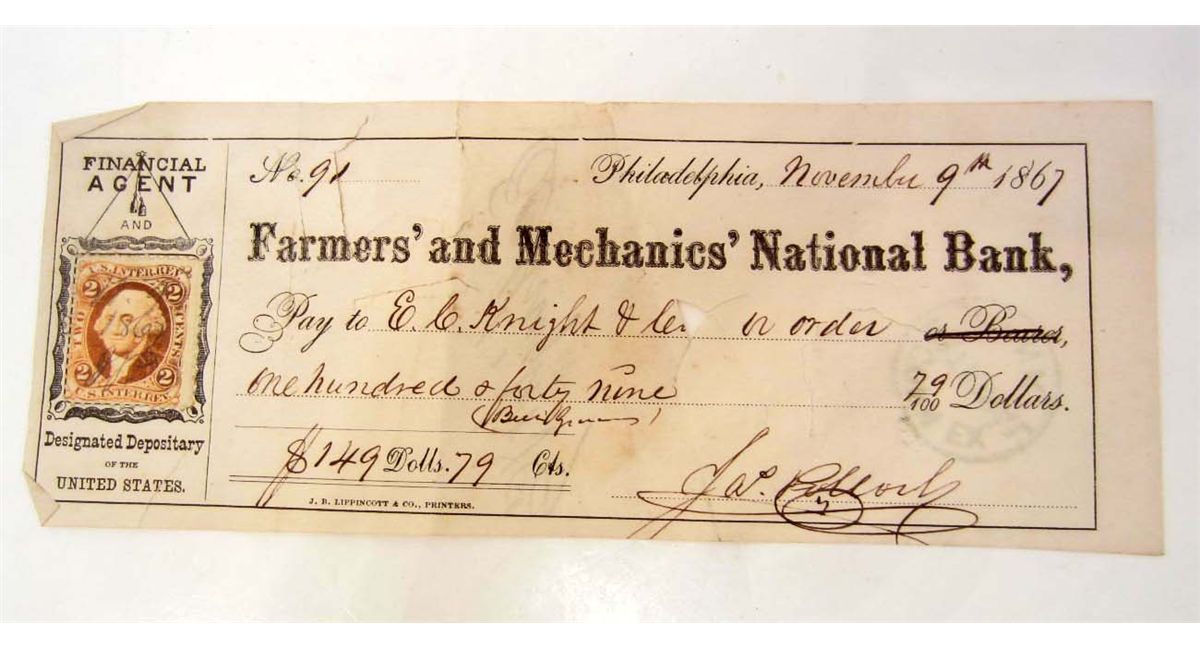 FINANCIAL
AGENT
AND
U.S. INTER. REV.
2 2
TWO CENTS
2 2
U.S. INTER. REV.
Designated Depositary
OF THE
UNITED STATES.
No. 91
Philadelphia, November 9th 1867
Farmers' and Mechanics' National Bank,
Pay to E. C. Knight & Co or order or Bearer,
One hundred & forty nine 79/100 Dollars.
$149 Dolls. 79 Cts.
Jas. Pollock
J. B. LIPPINCOTT & CO., PRINTERS.